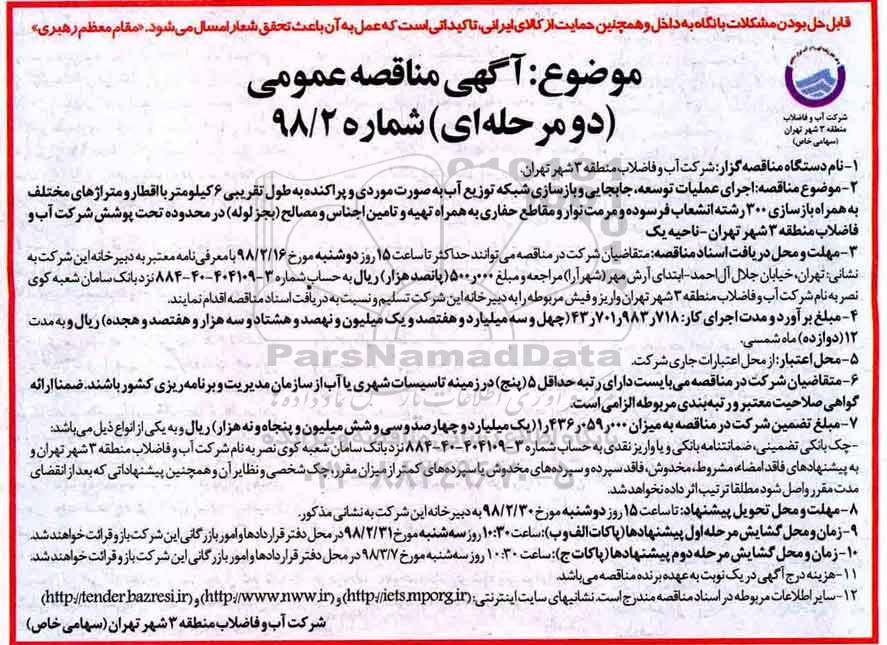 قابل حل بودن مشکلات با نگاه به داخل و همچنین حمایت از کالای ایرانی، تاکیداتی است که عمل به آن باعث تحقق شعار امسال می‌شود. «مقام معظم رهبری»
موضوع: آگهی مناقصه عمومی
(دو مرحله‌ای) شماره ۹۸/۲
شرکت آب و فاضلاب
منطقه ۳ شهر تهران
(سهامی خاص)
۱- نام دستگاه مناقصه گزار: شرکت آب و فاضلاب منطقه ۳ شهر تهران.
۲- موضوع مناقصه: اجرای عملیات توسعه، جابجایی و بازسازی شبکه توزیع آب به صورت موردی و پراکنده به طول تقریبی ۶ کیلومتر با اقطار و متراژهای مختلف
به همراه بازسازی ۳۰۰ رشته انشعاب فرسوده و مرمت نوار و مقاطع حفاری به همراه تهیه و تامین اجناس و مصالح (بجز لوله) در محدوده تحت پوشش شرکت آب و
فاضلاب منطقه ۳ شهر تهران - ناحیه یک
۳- مهلت و محل دریافت اسناد مناقصه: متقاضیان شرکت در مناقصه می‌توانند حداکثر تا ساعت ۱۵ روز دوشنبه مورخ ۹۸/۲/۱۶ با معرفی نامه معتبر به دبیرخانه این شرکت به
نشانی: تهران، خیابان جلال آل احمد- ابتدای آرش مهر (شهرآرا) مراجعه و مبلغ ۵۰۰٫۰۰۰ (پانصد هزار) ریال به حساب شماره ۳-۴۰۴۱۰۹-۴۰-۸۸۴ نزد بانک سامان شعبه کوی
نصر به نام شرکت آب و فاضلاب منطقه ۳ شهر تهران واریز و فیش مربوطه را به دبیرخانه این شرکت تسلیم و نسبت به دریافت اسناد مناقصه اقدام نمایند.
۴- مبلغ برآورد و مدت اجرای کار: ۴۳٫۷۰۱٫۹۸۳٫۷۱۸ (چهل و سه میلیارد و هفتصد و یک میلیون و نهصد و هشتاد و سه هزار و هفتصد و هجده) ریال و به مدت
۱۲ (دوازده) ماه شمسی.
۵- محل اعتبار: از محل اعتبارات جاری شرکت.
۶- متقاضیان شرکت در مناقصه می‌بایست دارای رتبه حداقل ۵ (پنج) در زمینه تاسیسات شهری یا آب از سازمان مدیریت و برنامه ریزی کشور باشند. ضمنا ارائه
گواهی صلاحیت معتبر و رتبه بندی مربوطه الزامی است.
۷- مبلغ تضمین شرکت در مناقصه به میزان ۱٫۴۳۶٫۰۵۹٫۰۰۰ (یک میلیارد و چهارصد و سی و شش میلیون و پنجاه و نه هزار) ریال و به یکی از انواع ذیل می‌باشد:
-چک بانکی تضمینی، ضمانتنامه بانکی و یا واریز نقدی به حساب شماره ۳-۴۰۴۱۰۹-۴۰-۸۸۴ نزد بانک سامان شعبه کوی نصر به نام شرکت آب و فاضلاب منطقه ۳ شهر تهران و
به پیشنهادهای فاقد امضاء، مشروط، مخدوش، فاقد سپرده و سپرده‌های مخدوش یا سپرده‌های کمتر از میزان مقرر، چک شخصی و نظایر آن و همچنین پیشنهاداتی که بعد از انقضای
مدت مقرر واصل شود مطلقا ترتیب اثر داده نخواهد شد.
۸- مهلت و محل تحویل پیشنهاد: تا ساعت ۱۵ روز دوشنبه مورخ ۹۸/۲/۳۰ به دبیرخانه این شرکت به نشانی مذکور.
۹- زمان و محل گشایش مرحله اول پیشنهادها (پاکات الف و ب): ساعت ۱۰:۳۰ روز سه‌شنبه مورخ ۹۸/۲/۳۱ در محل دفتر قراردادها و امور بازرگانی این شرکت باز و قرائت خواهند شد.
۱۰- زمان و محل گشایش مرحله دوم پیشنهادها (پاکات ج): ساعت ۱۰:۳۰ روز سه‌شنبه مورخ ۹۸/۳/۷ در محل دفتر قراردادها و امور بازرگانی این شرکت باز و قرائت خواهند شد.
۱۱- هزینه درج آگهی در یک نوبت به عهده برنده مناقصه می‌باشد.
۱۲- سایر اطلاعات مربوطه در اسناد مناقصه مندرج است. نشانیهای سایت اینترنتی: (http://iets.mporg.ir) و (http://www.nww.ir) و (http://tender.bazresi.ir)
شرکت آب و فاضلاب منطقه ۳ شهر تهران (سهامی خاص)
ParsNamadData